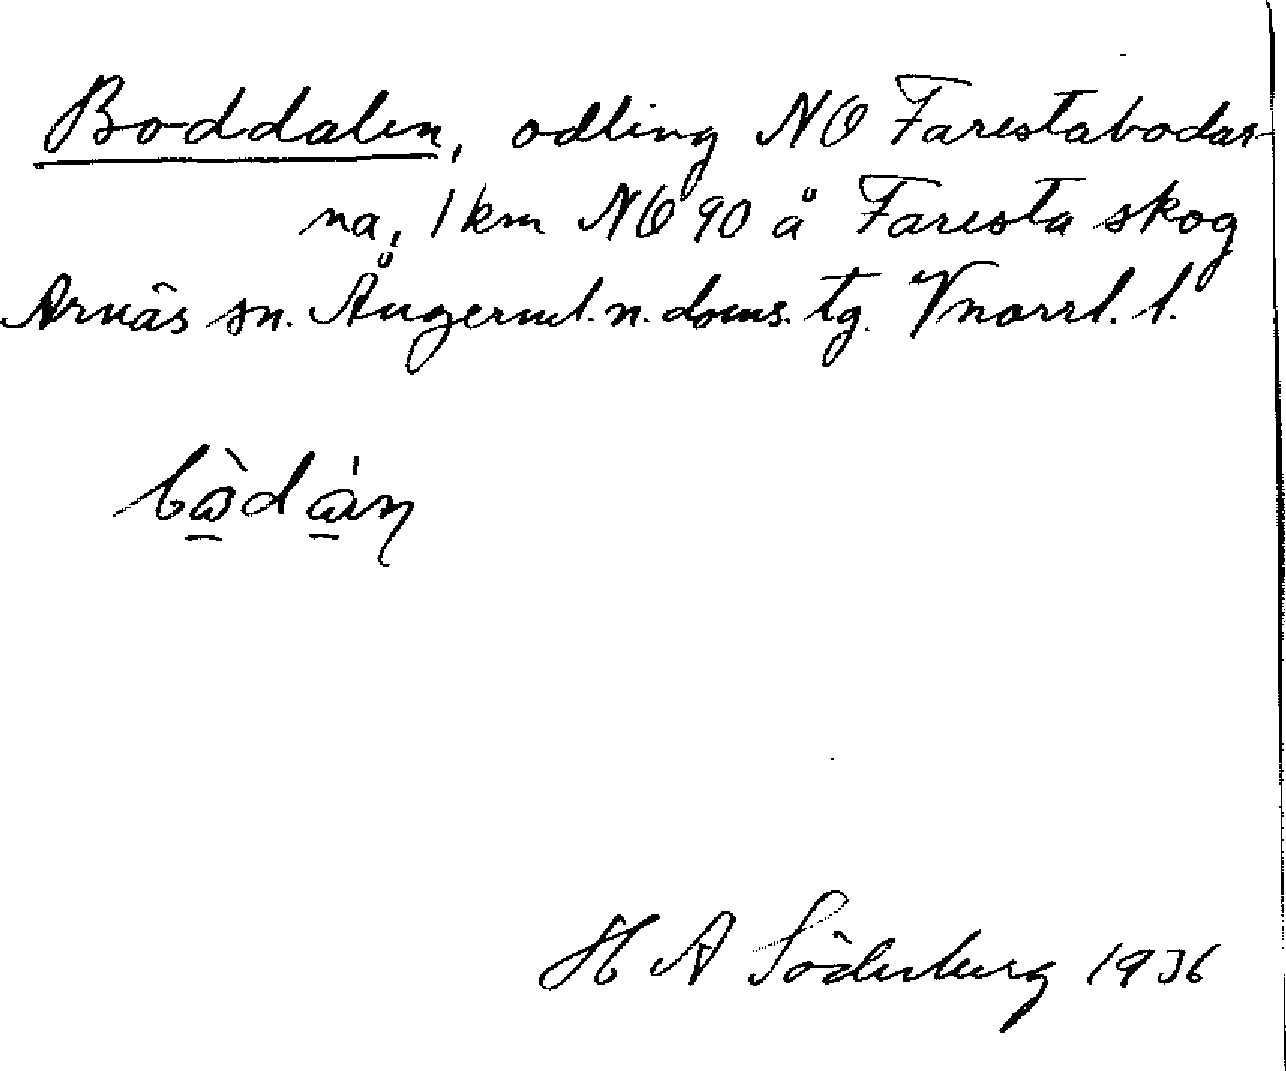 Boddalen, odling NO Farestabodar-
na, 1 km NO 90 å Faresta skog
Arnäs sn. Ångerml. n. doms. tg. Vnorrl. l.
H A Söderberg 1936